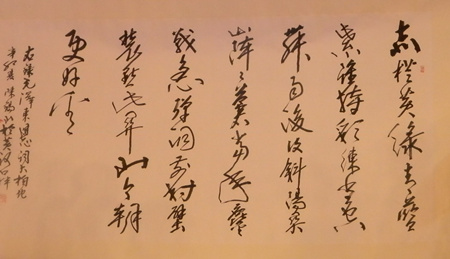 赤橙黃綠青藍
紫誰持彩練當空
舞雨後復斜陽關
山陣々蒼當年鏖
戰急彈洞前村壁
裝點此關山今朝
更好看
澤東 詞大柏地
辛卯